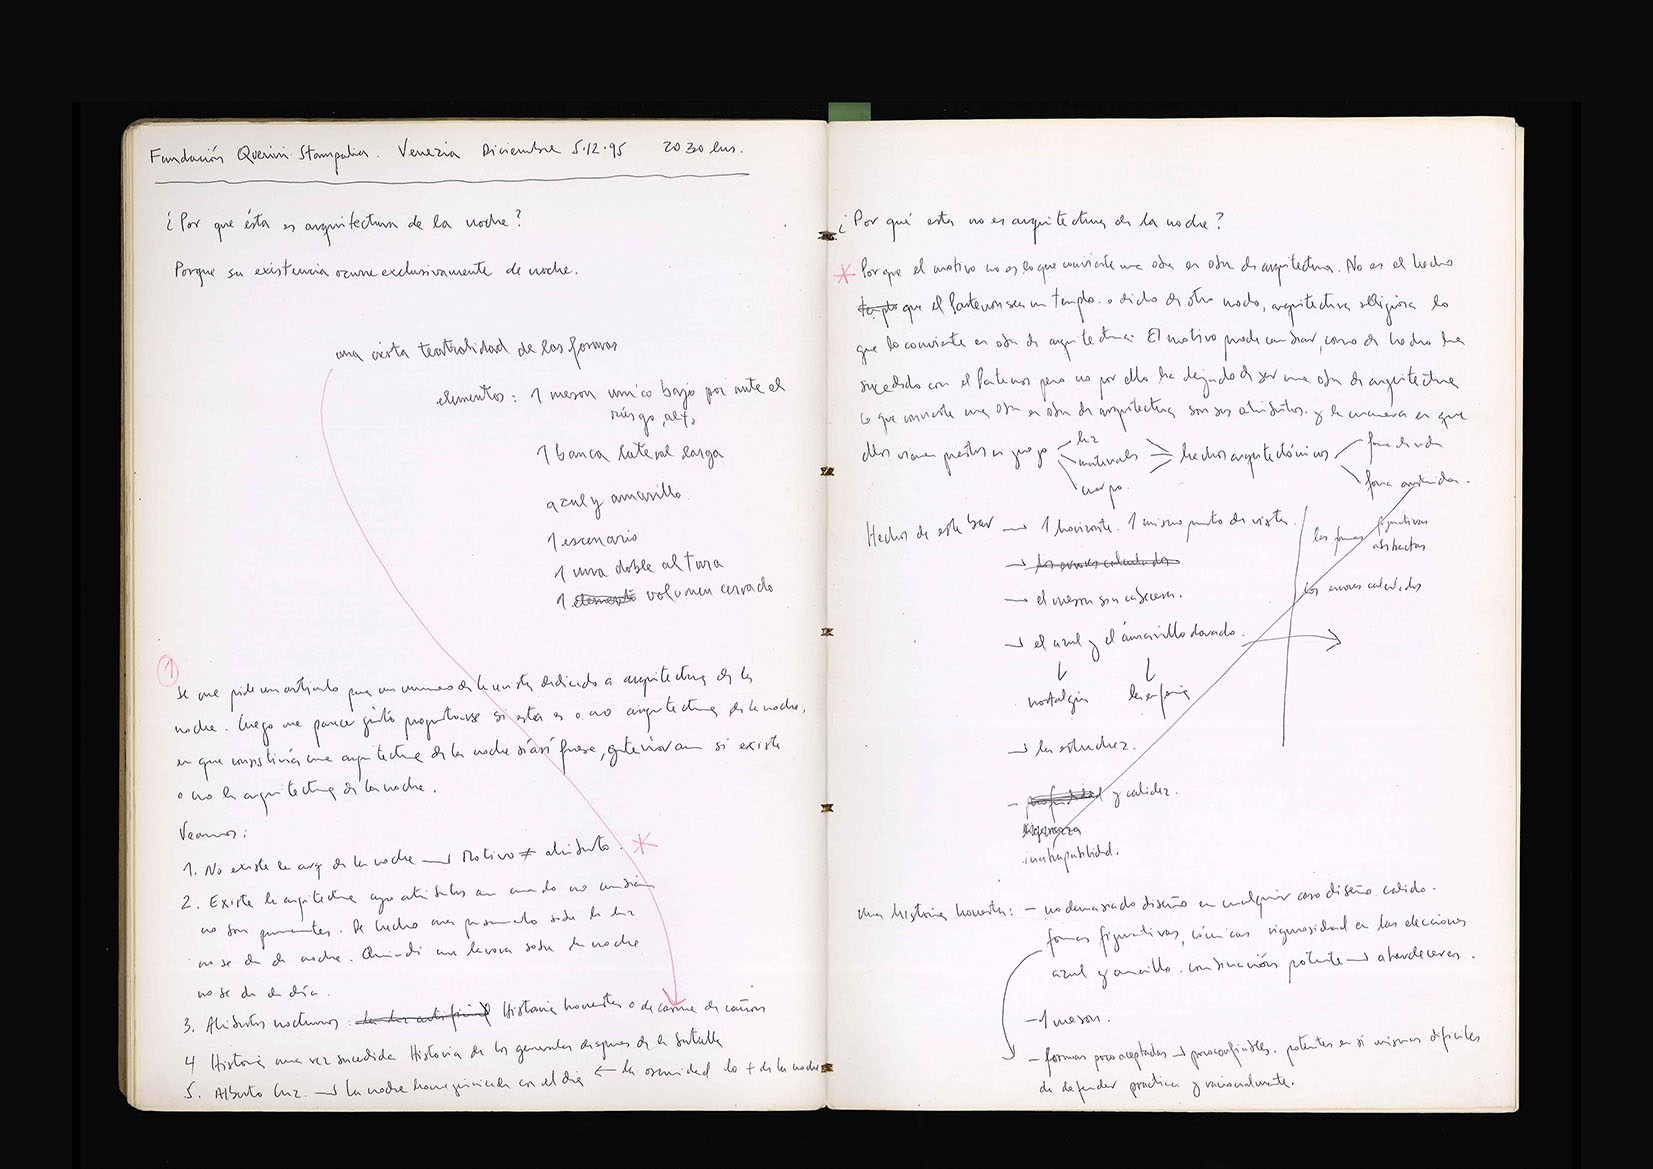 Fundación Querini Stampalia. Venezia Diciembre 5.12.95 20 30 hrs.
¿Por que ésta es arquitectura de la noche?
Porque su existencia ocurre exclusivamente de noche.
una cierta teatralidad de las formas
elementos: 1 meson unico bajo por ante el
riesgo, alto
1 banca lateral larga
azul y amarillo.
1 escenario
1 una doble altura
1 elemento volumen cerrado
1
Se me pide un articulo para un numero de la revista dedicado a arquitectura de la
noche. Luego me parece justo preguntarse si esta es o no arquitectura de la noche,
en que consistiria una arquitectura de la noche si asi fuese, y si existe
o no la arquitectura de la noche.
Veamos:
1. No existe la arq de la noche → Motivo ≠ atributo. *
2. Existe la arquitectura cuyos atributos aun cuando no cambian
no son permanentes. De hecho una sobre la luz
no se da de noche. sobre la noche
no se da de día.
3. Atributos nocturnos: la luz artificial Historia honesta o de carne de cañon
4 Historia una vez sucedida Historia de los generales despues de la batalla
5. Alberto Cruz. → la noche homogeneizada con el dia ← la oscuridad lo + de la noche
¿Por qué esta no es arquitectura de la noche?
* Porque el motivo no es lo que convierte una obra en obra de arquitectura. No es el hecho
templo que el Partenon sea un templo. o dicho de otro modo, arquitectura religiosa lo
que lo convierte en obra de arquitectura. El motivo puede cambiar, como de hecho ha
sucedido con el Partenon pero no por ello ha dejado de ser una obra de arquitectura
Lo que convierte una obra en obra de arquitectura son sus atributos. y la manera en que
ellos vienen puestos en juego luz materiales cuerpo. hechos arquitectónicos forma de vida
forma construida.
Hechos de este bar → 1 horizonte. 1 mismo punto de vista. las formas figurativas
abstractas
→ los errores calculados
→ el meson sin cabecera. los errores calculados
→ el azul y el amarillo dorado. →
↓ ↓
nostalgia la energia
→ la estrechez.
- profundidad y calidez.
una historia honesta: - no demasiado diseño en cualquier caso diseño calido.
formas figurativas, cónicas rigurosidad en las elecciones
azul y amarillo. combinación potente → atardeceres.
- 1 meson.
- formas poco aceptadas → poco confiables. potentes en si mismas dificiles
de defender practica y racionalmente.